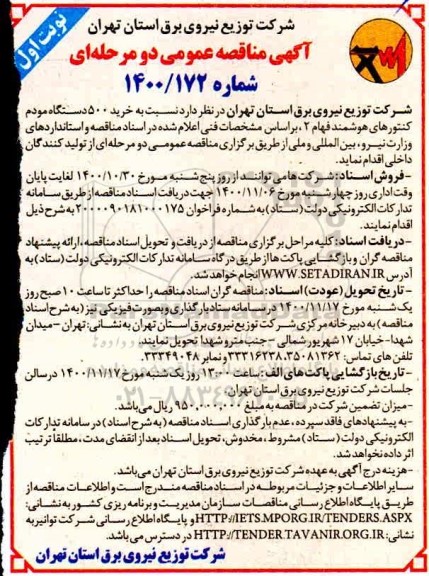 نوبت اول
شرکت توزیع نیروی برق استان تهران
آگهی مناقصه عمومی دو مرحله‌ای
شماره ۱۴۰۰/۱۷۲
شرکت توزیع نیروی برق استان تهران در نظر دارد نسبت به خرید ۵۰۰ دستگاه مودم
کنتورهای هوشمند فهام ۲، بر اساس مشخصات فنی اعلام شده در اسناد مناقصه و استانداردهای
وزارت نیرو، بین المللی و ملی از طریق برگزاری مناقصه عمومی دو مرحله ای از تولید کنندگان
داخلی اقدام نماید.
-فروش اسناد: شرکت ها می توانند از روز پنج شنبه مورخ ۱۴۰۰/۱۰/۳۰ لغایت پایان
وقت اداری روز چهارشنبه مورخ ۱۴۰۰/۱۱/۰۶ جهت دریافت اسناد مناقصه از طریق سامانه
تدارکات الکترونیکی دولت (ستاد) به شماره فراخوان ۲۰۰۰۰۹۰۱۸۱۰۰۰۱۷۵ به شرح ذیل
اقدام نمایند.
-دریافت اسناد: کلیه مراحل برگزاری مناقصه از دریافت و تحویل اسناد مناقصه، ارائه پیشنهاد
مناقصه گران و بازگشایی پاکت ها از طریق درگاه سامانه تدارکات الکترونیکی دولت (ستاد) به
آدرس WWW.SETADIRAN.IR انجام خواهد شد.
-تاریخ تحویل (عودت) اسناد: مناقصه گران اسناد مناقصه را حداکثر تا ساعت ۱۰ صبح روز
یک شنبه مورخ ۱۴۰۰/۱۱/۱۷ در سامانه ستاد بارگذاری و بصورت فیزیکی نیز (به شرح اسناد
مناقصه) به دبیرخانه مرکزی شرکت توزیع نیروی برق استان تهران به نشانی: تهران - میدان
شهدا- خیابان ۱۷ شهریور شمالی - جنب مترو شهدا تحویل نمایند.
تلفن های تماس: ۳۵۰۸۱۳۶۲، ۳۳۳۱۶۲۳۸ و نمابر ۳۳۳۴۹۰۴۸.
-تاریخ بازگشایی پاکت های الف: ساعت ۱۳:۰۰ روز یک شنبه مورخ ۱۴۰۰/۱۱/۱۷ در سالن
جلسات شرکت توزیع نیروی برق استان تهران.
-میزان تضمین شرکت در مناقصه به مبلغ ۹۵۰.۰۰۰.۰۰۰ ریال می باشد.
-به پیشنهادهای فاقد سپرده، عدم بارگذاری اسناد مناقصه (به شرح اسناد) در سامانه تدارکات
الکترونیکی دولت (ستاد) مشروط، مخدوش، تحویل اسناد بعد از انقضای مدت، مطلقا ترتیب
اثر داده نخواهد شد.
-هزینه درج آگهی به عهده شرکت توزیع نیروی برق استان تهران می باشد.
سایر اطلاعات و جزئیات مربوطه در اسناد مناقصه مندرج است و اطلاعات مناقصه از
طریق پایگاه اطلاع رسانی مناقصات سازمان مدیریت و برنامه ریزی کشور به نشانی:
HTTP://IETS.MPORG.IR/TENDERS.ASPX و پایگاه اطلاع رسانی شرکت توانیر به
نشانی: HTTP://TENDER.TAVANIR.ORG.IR در دسترس می باشد.
شرکت توزیع نیروی برق استان تهران